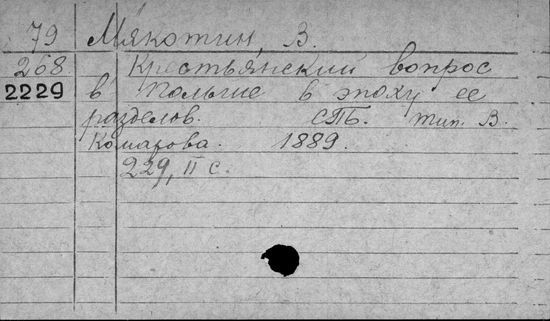 79 Мякотин, В.
268 Крестьянский вопрос
2229 в Польше в эпоху ее
разделов. СПб. тип. В.
Комарова. 1889.
229, II с.